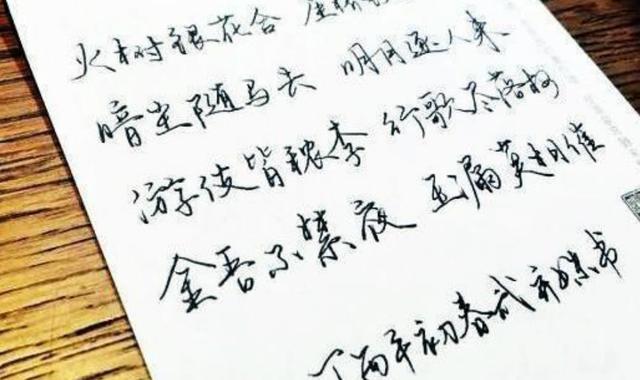 火树银花合 星桥
暗尘随马去 明月逐人来
游伎皆秾李 行歌尽落梅
金吾不禁夜 玉漏莫相催
丁酉年初春 书